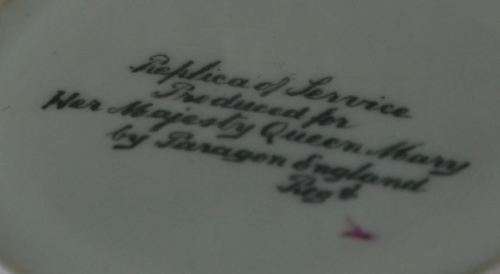 Replica of Service
Produced for
Her Majesty Queen Mary
by Paragon England
Reg d